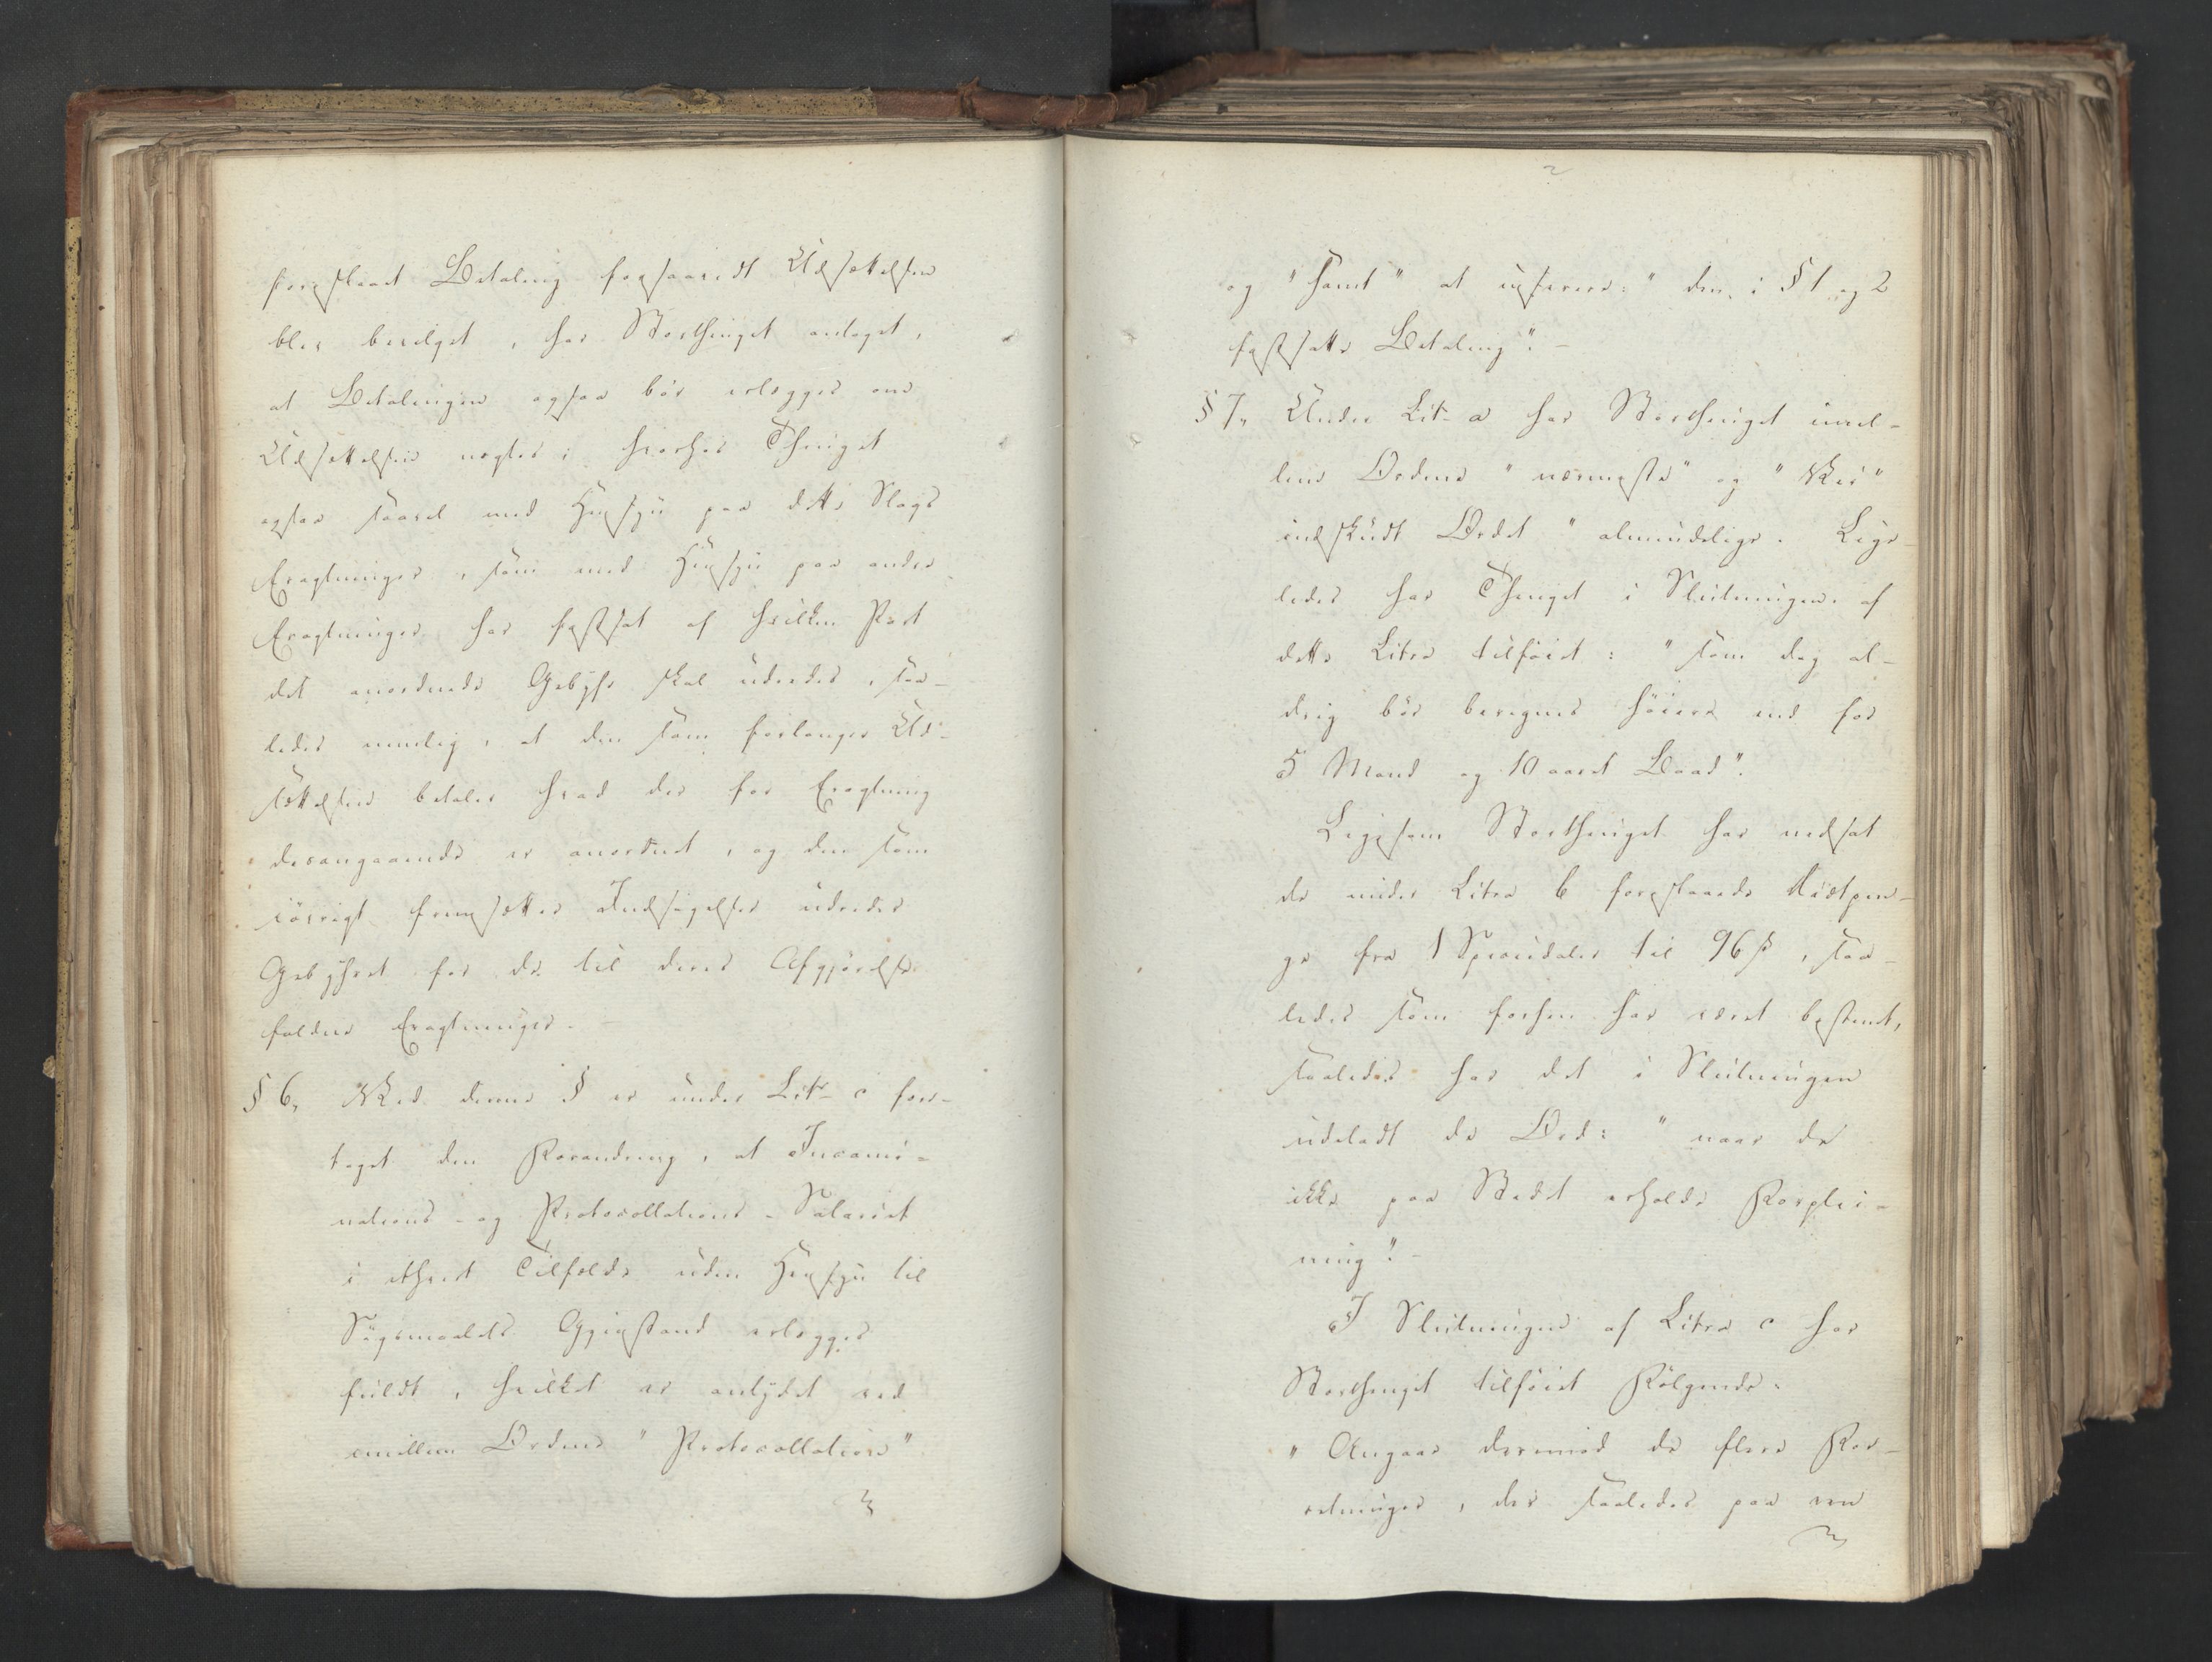 foreslaaet Betaling forsaavidt Udsættelsen
blev bevilget, har Storthinget antaget,
at Betalingen ogsaa bør erlægges om
Udsættelsen nægtes; hvorhos Thinget
ogsaa saavel med Hensyn paa dette Slags
Eragtninger, som med Hensyn paa andre
Eragtninger har fastsat af hvilken Part
det anordnede Gebyhr skal udredes, saa-
ledes nemlig, at den som forlanger Ud-
sættelsen betaler hvad der for Eragtning
desangaaende er anordnet, og den som
iøvrigt fremsætter Indsigelser udreder
Gebyhret for de til deres Afgjørelse
faldne Eragtninger. -
§ 6, Ved denne § er under Litr c fore-
taget den Forandring, at Incami-
nations- og Protocollations-Salariet
i ethvert Tilfælde uden Hensyn til
Søgsmaalets Gjenstand erlægges
fuldt, hvilket er antydet ved
imellem Ordene "Protocollation"
2
og "samt" at inserere: "den i § 1 og 2
fastsatte Betaling". -
§ 7, Under Litr a har Storthinget imel-
lem Ordene "nærmeste" og "Vei"
indskudt Ordet "almindelige. Lige-
ledes har Thinget i Slutningen af
dette Litra tilføiet: "som dog al-
drig bør beregnes høiere end for
5 Mand og 10 aaret Baad".
Ligesom Storthinget har nedsat
de under Litra b foreslaaede Diætpen-
ge fra 1 Speciedaler til 96 ß, saa-
ledes som forhen har været bestemt,
saaledes har det i Slutningen
udeladt de Ord: "naar de
ikke paa Stedet erholde Forplei-
ning". -
I Slutningen af Litra c har
Storthinget tilføiet Følgende:
"Angaae derimod de flere For-
retninger, der saaledes paa een